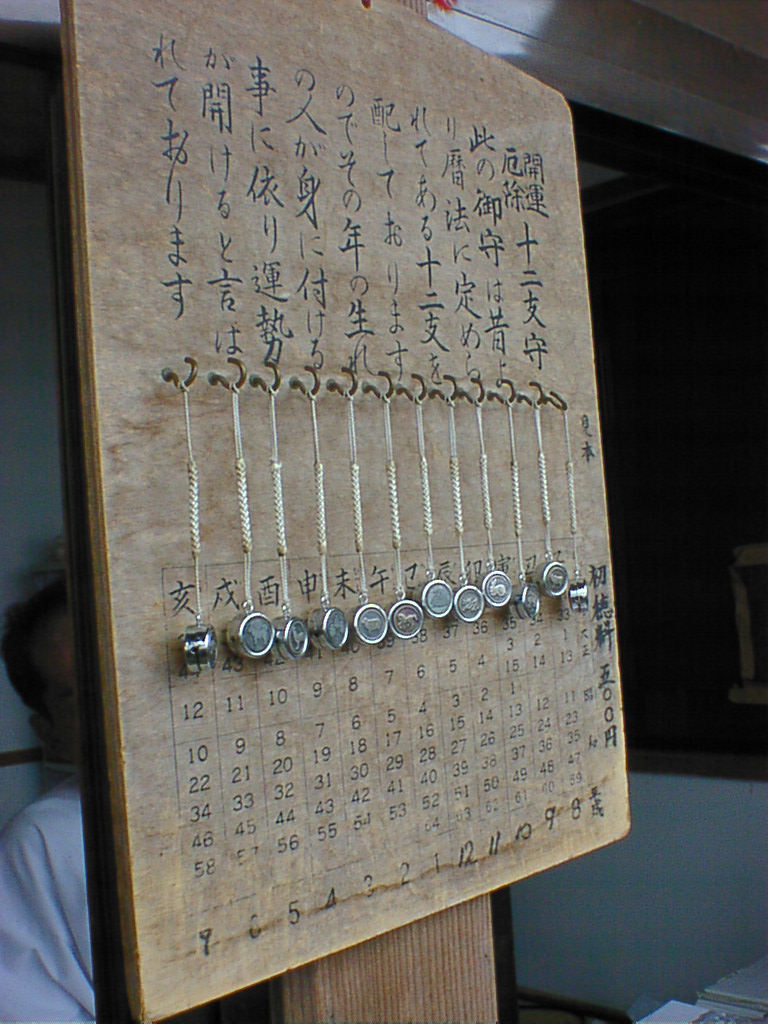 開運
厄除
十二支守
此の御守は昔よ
り暦法に定めら
れてある十二支を
配しております
のでその年の生れ
の人が身に付ける
事に依り運勢
が開けると言は
れております
見本
初穂料 五〇〇円
亥 戌 酉 申 未 午 巳 辰 卯 寅 丑
44 43 42 41 40 39 38 37 36 35 34 33
12 11 10 9 8 7 6 5 4 3 2 1 大正
15 14 13
10 9 8 7 6 5 4 3 2 1 昭和
22 21 20 19 18 17 16 15 14 13 12 11
34 33 32 31 30 29 28 27 26 25 24 23
46 45 44 43 42 41 40 39 38 37 36 35
58 57 56 55 54 53 52 51 50 49 48 47
64 63 62 61 60 59
7 6 5 4 3 2 1 12 11 10 9 8 平成